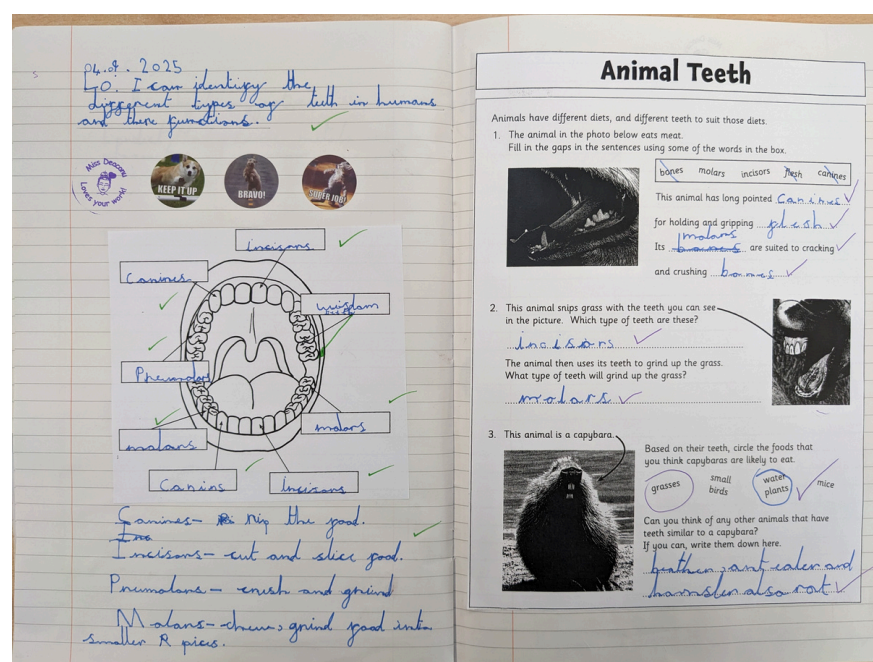 04.9.2025
LO. I can identify the
different types of teeth in humans
and there functions.
Miss Deacanu
Loves your work!
KEEP IT UP
BRAVO!
SUPER JOB!
Incisors
Canines
wisdom
Premolars
molars
molars
Canins
Incisors
Canines- rip the food.
Incisors- cut and slice food.
Premolars- crush and grind
Molars- chew, grind food into
smaller pices.
Animal Teeth
Animals have different diets, and different teeth to suit those diets.
1. The animal in the photo below eats meat.
Fill in the gaps in the sentences using some of the words in the box.
bones molars incisors flesh canines
This animal has long pointed canines
for holding and gripping flesh
molars
Its bones are suited to cracking
and crushing bones
2. This animal snips grass with the teeth you can see
in the picture. Which type of teeth are these?
incisors
The animal then uses its teeth to grind up the grass.
What type of teeth will grind up the grass?
molars
3. This animal is a capybara.
Based on their teeth, circle the foods that
you think capybaras are likely to eat.
grasses small birds water plants mice
Can you think of any other animals that have
teeth similar to a capybara?
If you can, write them down here.
ant eater and
hamster also rat